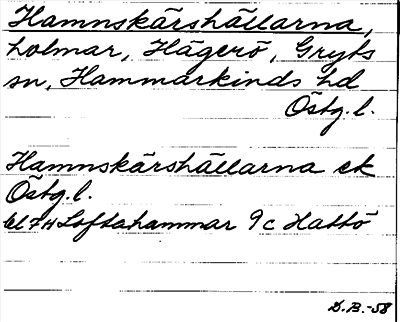 Hamnskärshällarna,
holmar, Hägerö, Gryts
sn, Hammarkinds hd
Östg. l.
Hamnskärshällarna ek
Östg. l.
bl 7H Loftahammar 9c Hattö
D.B.-58